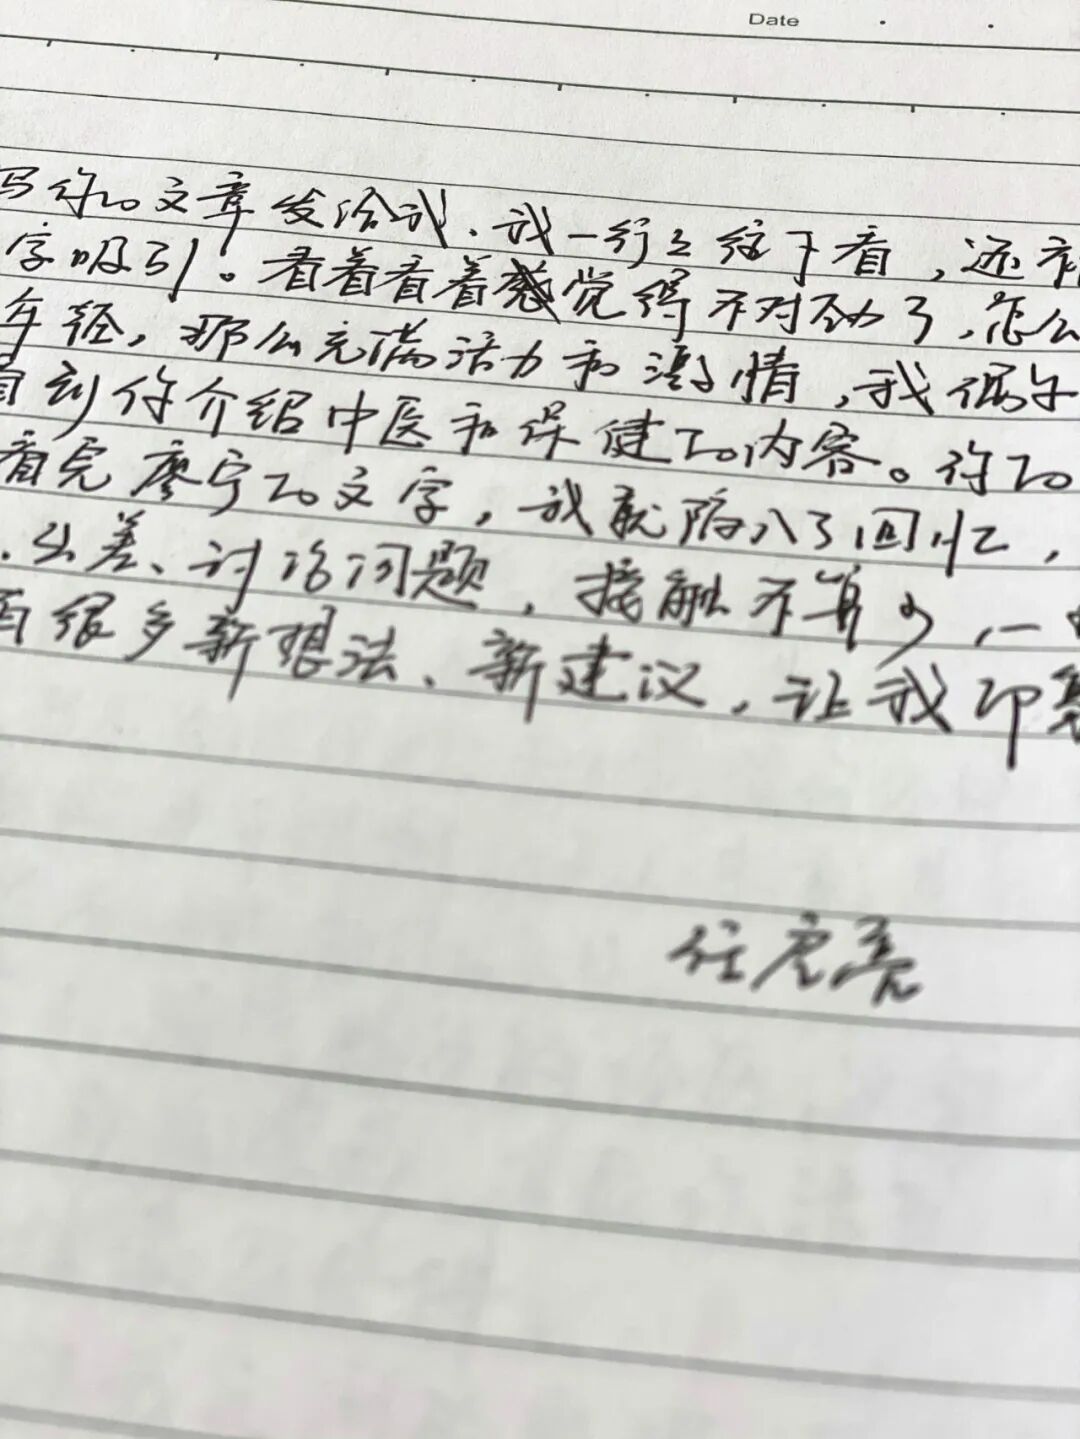 Date
写你的文章发给我、我一行行往下看，还
字吸引。看着看着感觉得不对劲了，怎么
年轻，那么充满活力和激情，我偶尔
看到你介绍中医和保健的内容。许的
看完廖宁的文字，我就陷入了回忆，
、出差、讨论问题，接触不算少，一
有很多新想法、新建议，让我印象
任